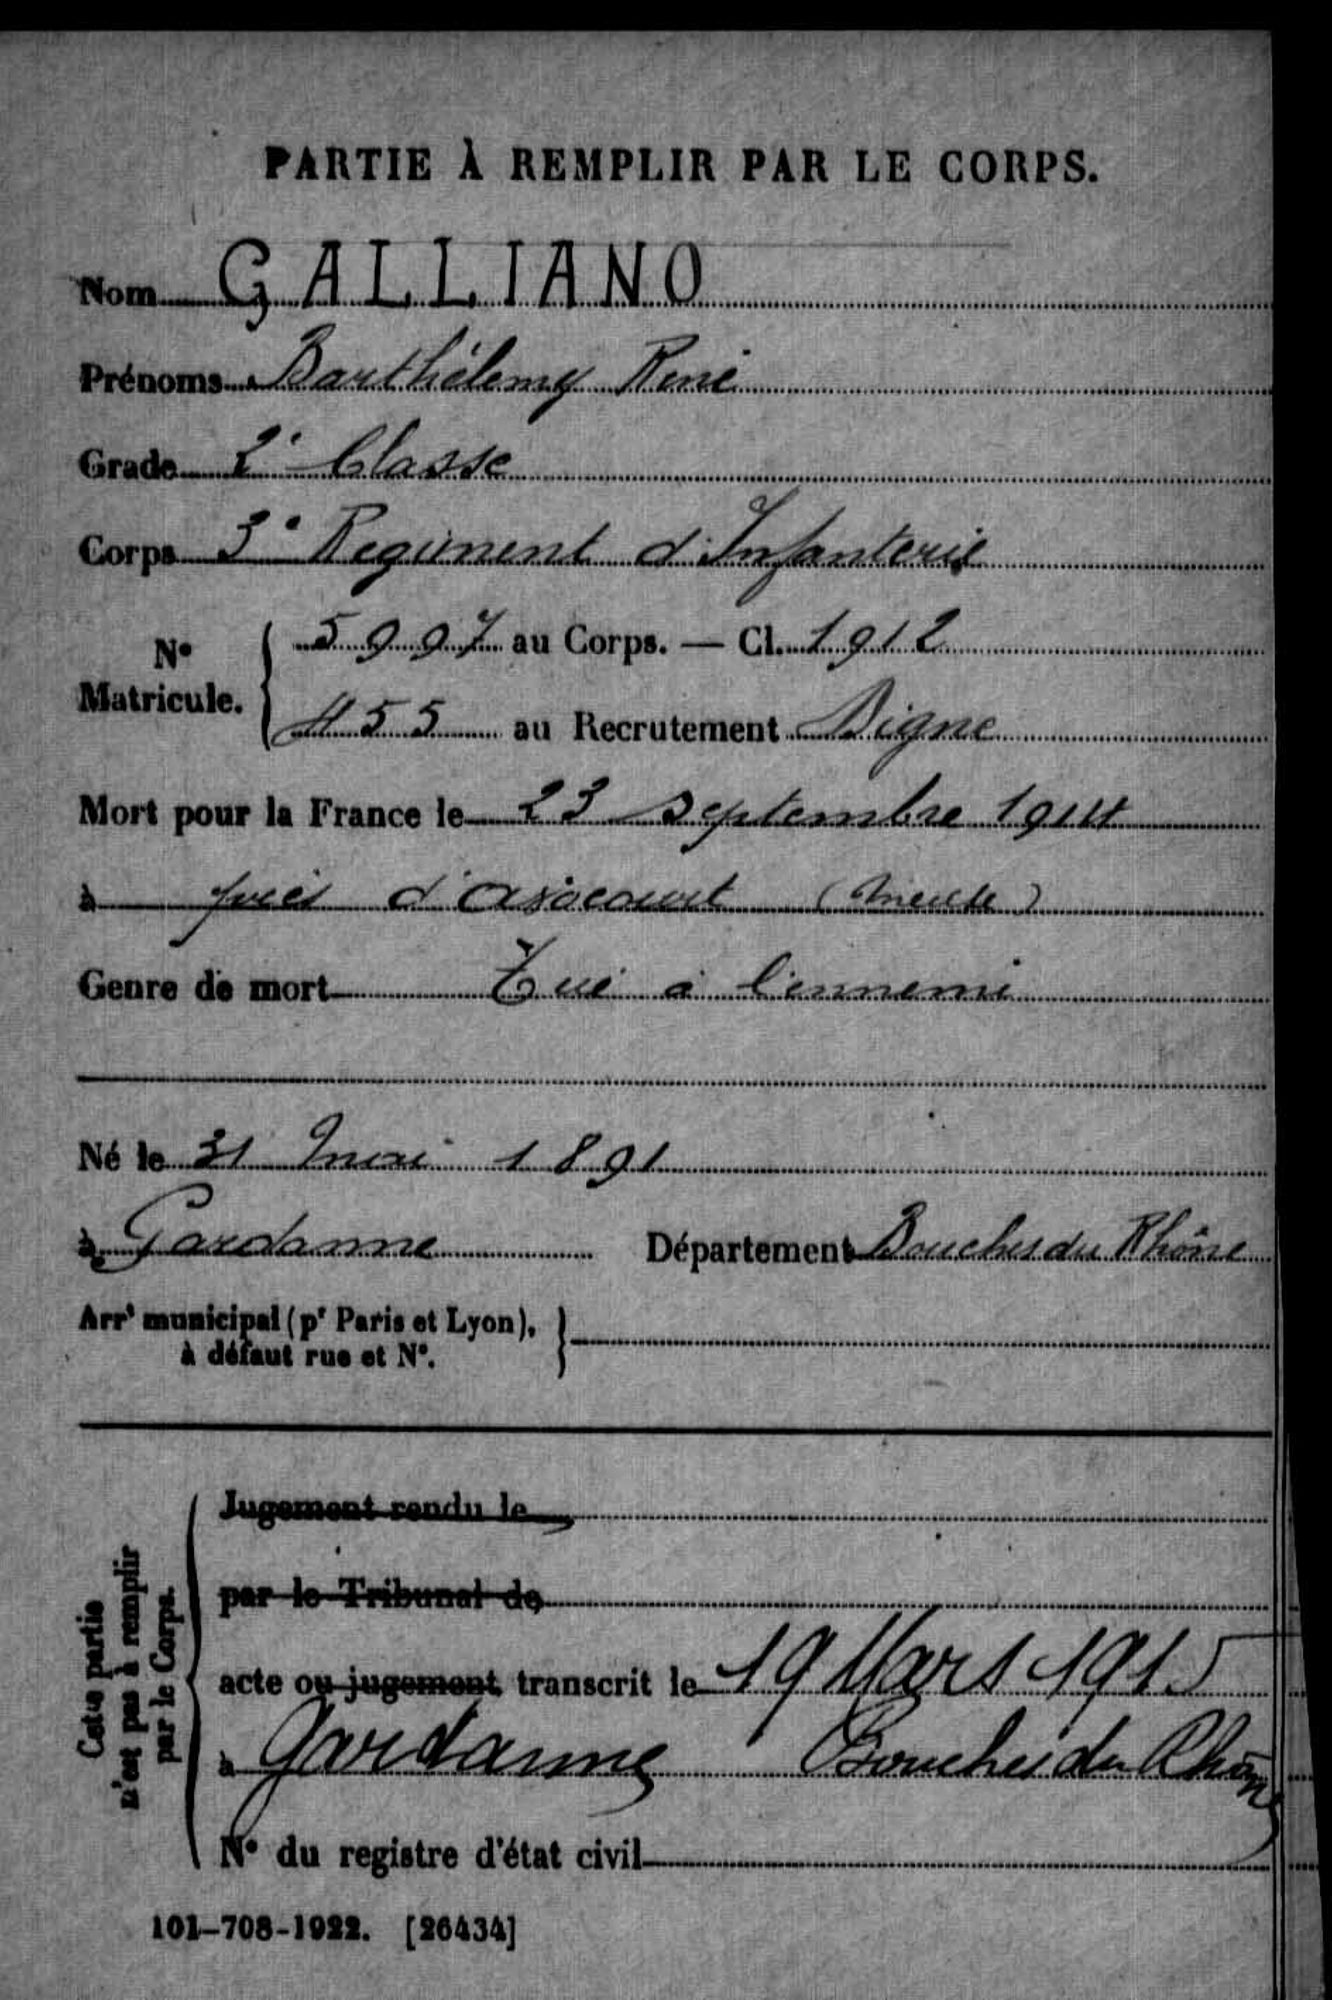 PARTIE À REMPLIR PAR LE CORPS.
Nom GALLIANO
Prénoms Barthélemy René
Grade 2e Classe
Corps 3e Regiment d'Infanterie
No Matricule. { 5997 au Corps. — Cl. 1912
455 au Recrutement Digne
Mort pour la France le 23 Septembre 1914
à près d' (Meuse)
Genre de mort Tué à l'ennemi
Né le 31 Mai 1891
à Gardanne Département Bouches du Rhône
Arrt municipal (pr Paris et Lyon), }
à défaut rue et No.
Cette partie
n'est pas à remplir
par le Corps.
Jugement rendu le
par le Tribunal de
acte ou jugement transcrit le 19 Mars 1915
à Gardanne Bouches du Rhône
No du registre d'état civil
101-708-1922. [26434]